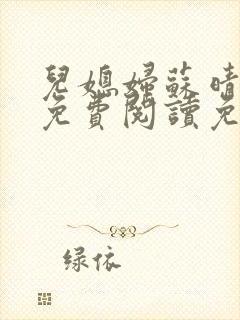 兒媳婦蘇晴
免費閱讀免
绿依